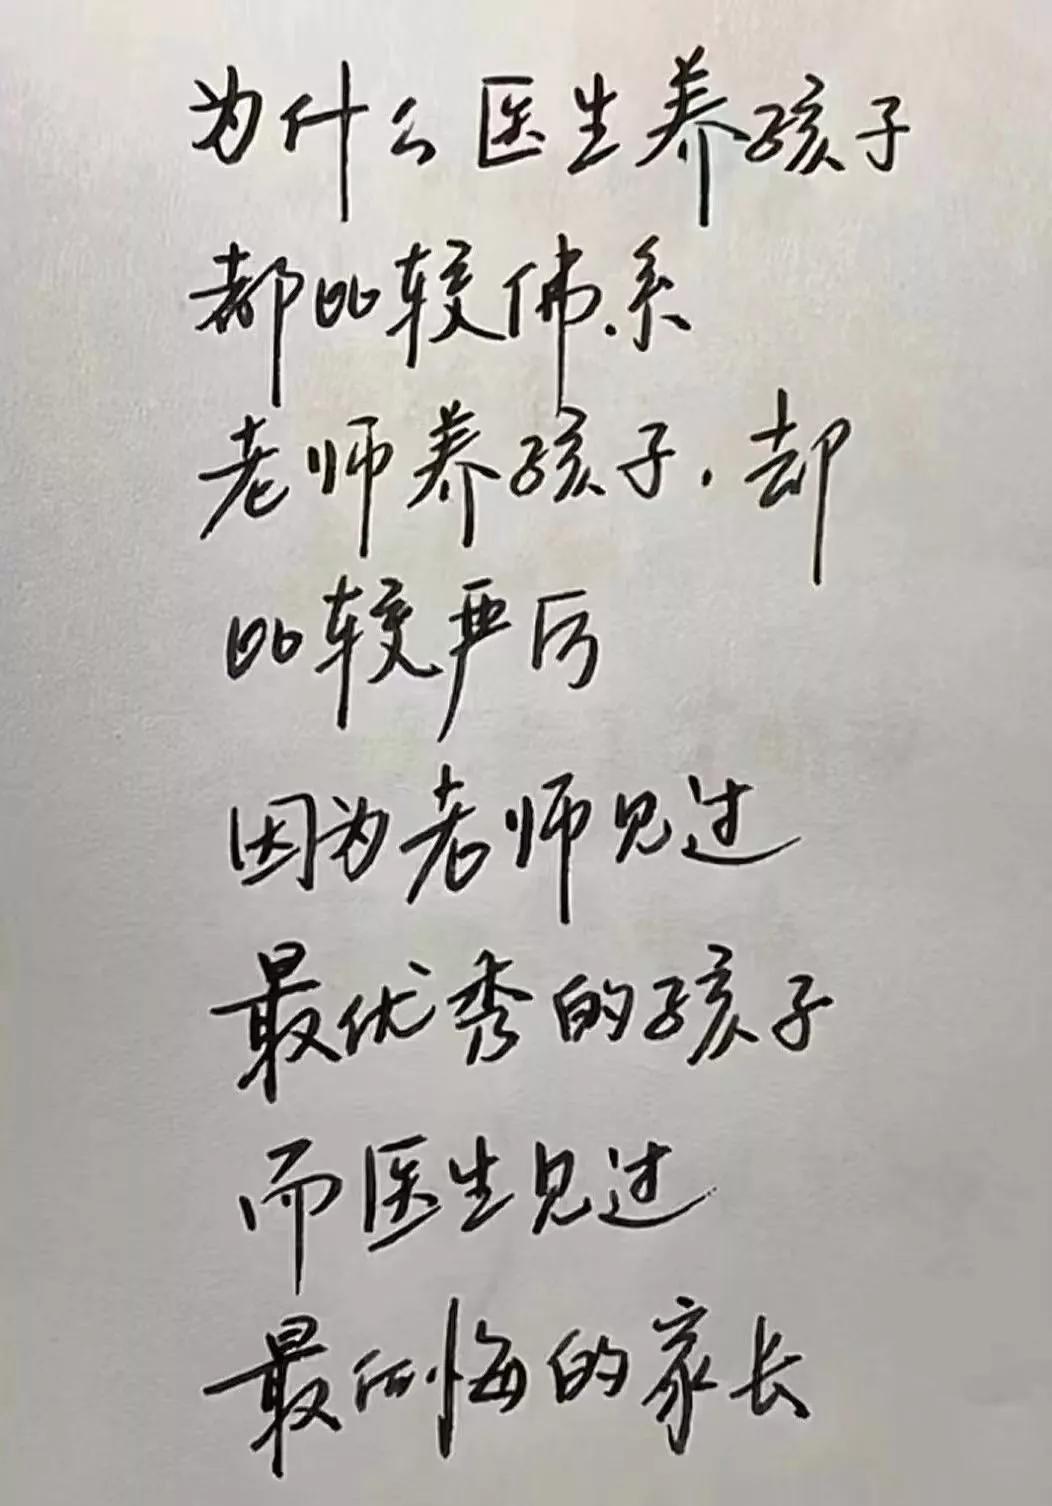 为什么医生养孩子
都比较佛系
老师养孩子，却
比较严厉
因为老师见过
最优秀的孩子
而医生见过
最后悔的家长